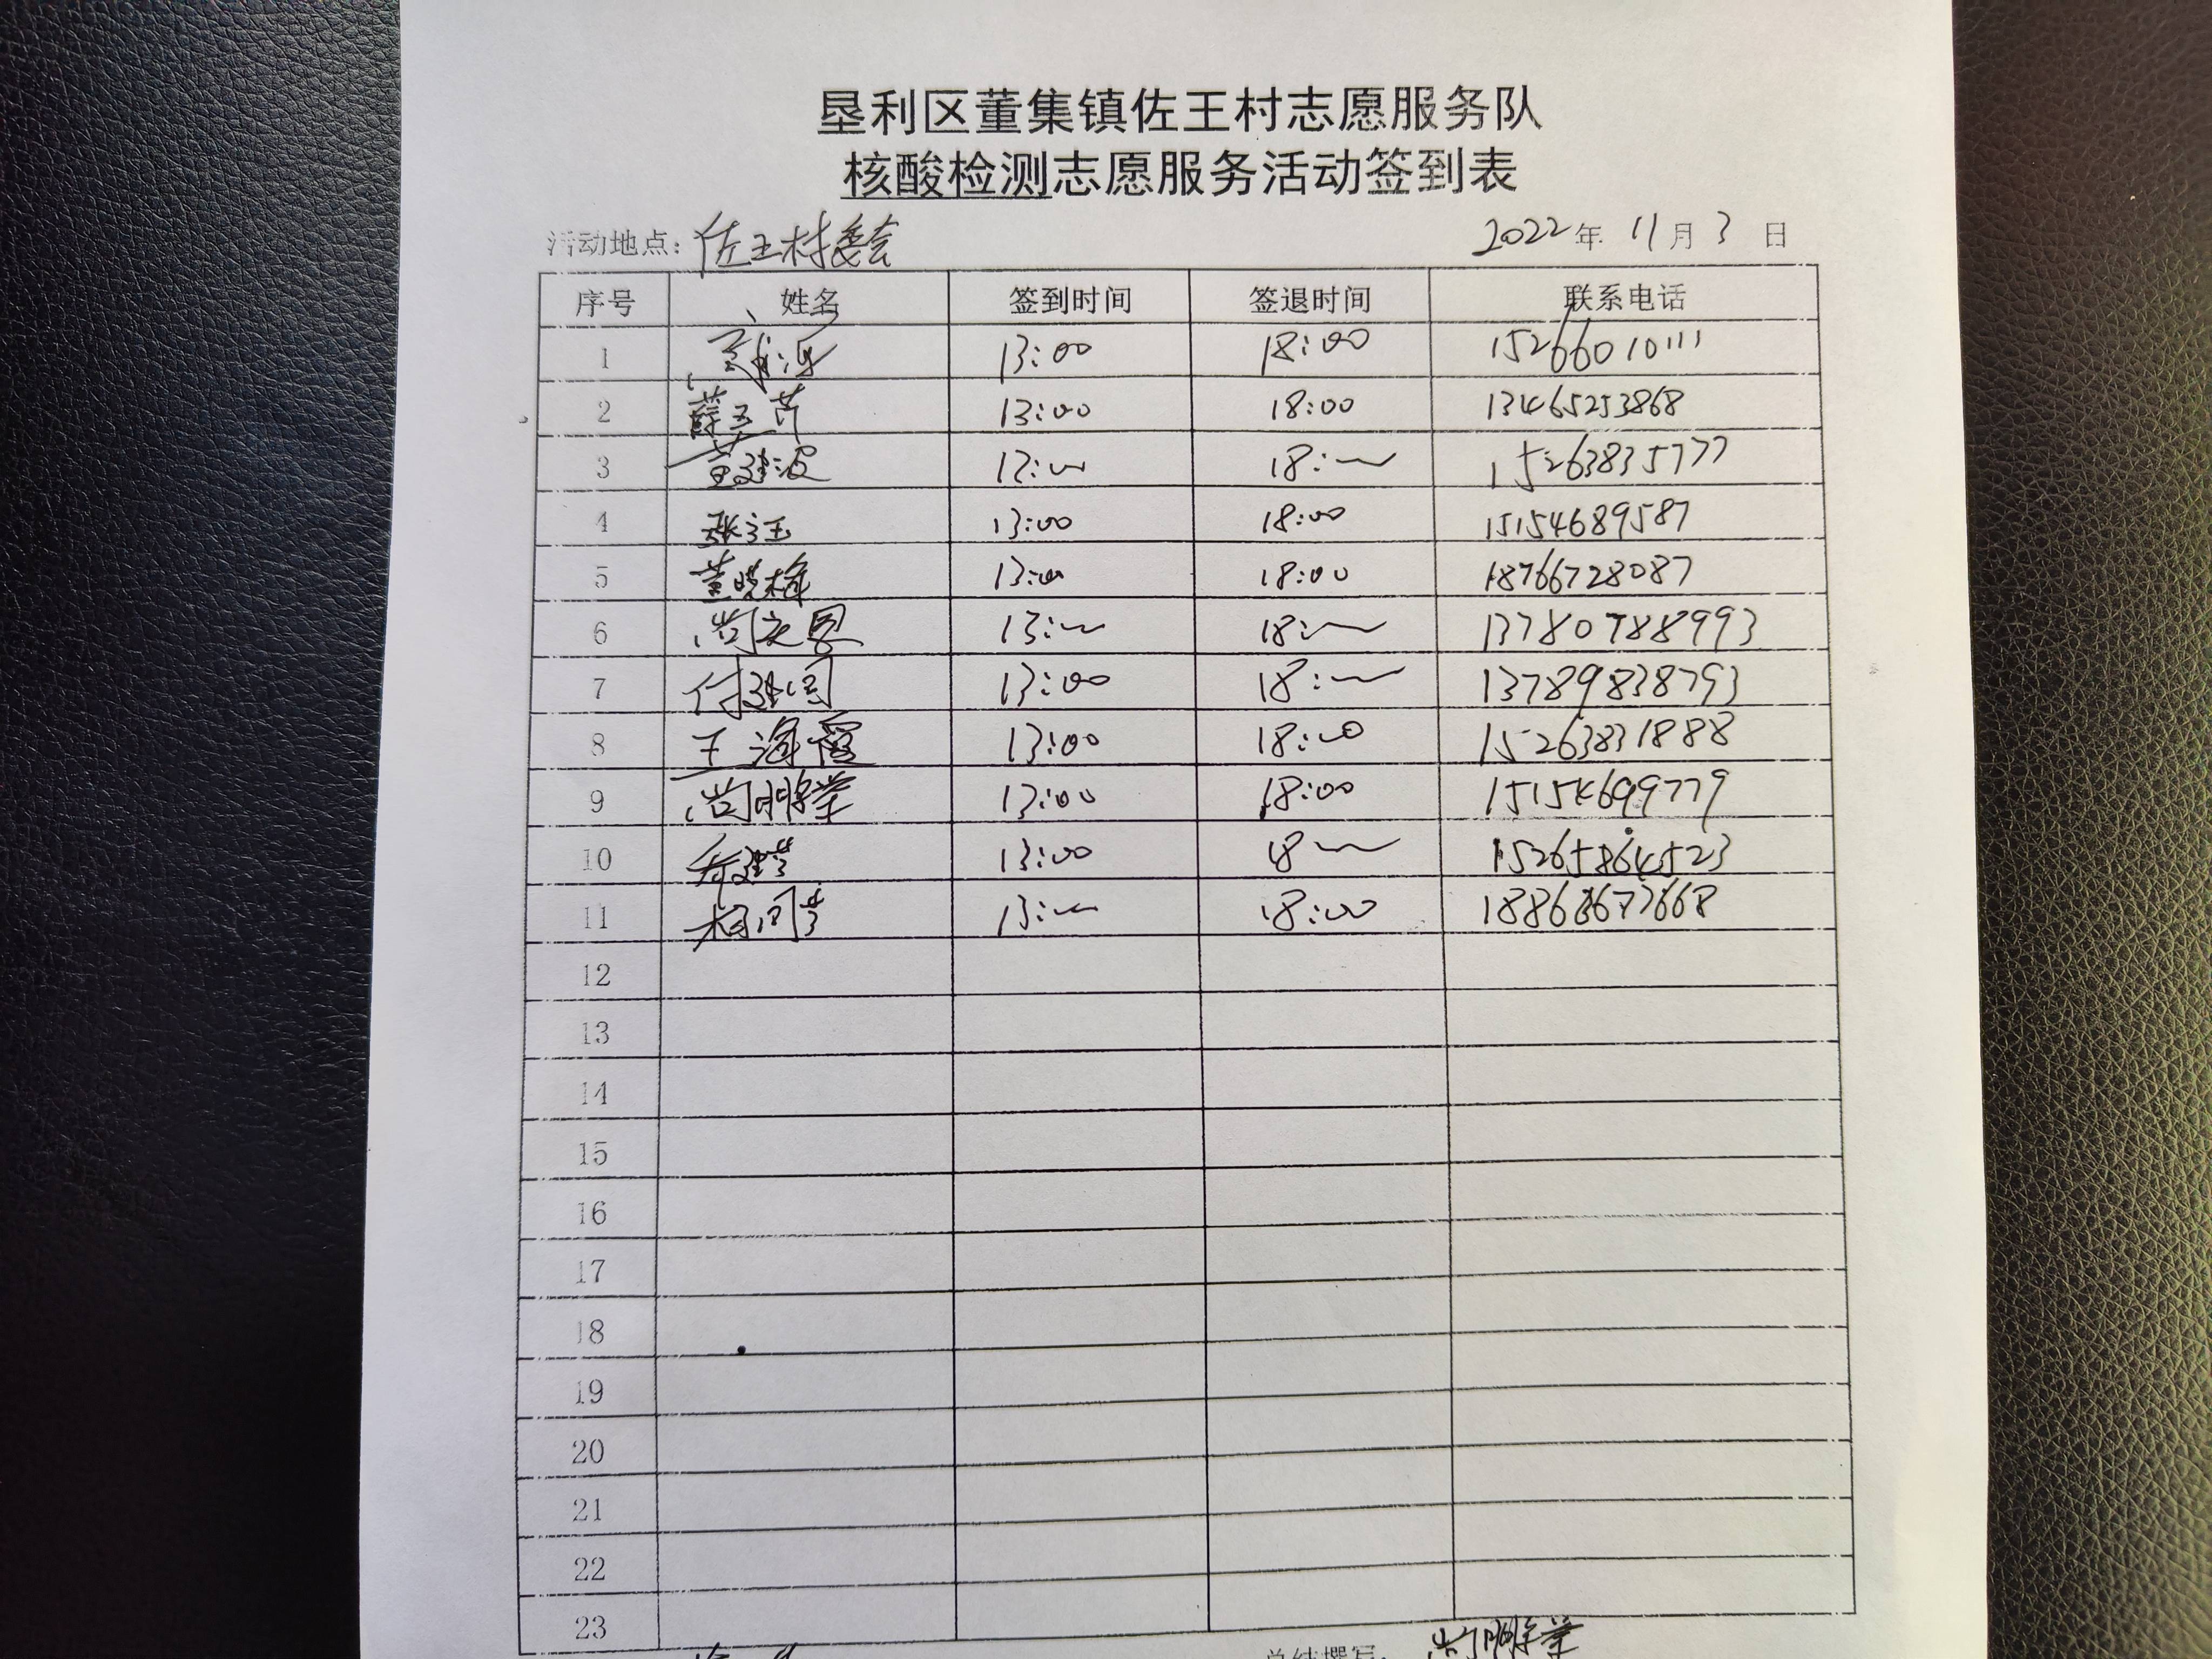 垦利区董集镇佐王村志愿服务队
核酸检测志愿服务活动签到表
活动地点：佐王村委会 2022年 11月 3 日
序号 姓名 签到时间 签退时间 联系电话
1 13:00 18:00 15266010111
2 薛玉芹 13:00 18:00 13465253868
3 董建波 18: 15263835777
4 13:00 18:00 15154689587
5 董晓梅 13:00 18:00 18766728087
6 尚 13: 18:
7 付建国 13:00 18: 13789838793
8 王海霞 13:00 18:00 15263831888
9 尚明堂 13:00 18:00 15154699779
10 13:00 18 15265864523
11 13: 18:00
12
13
14
15
16
17
18
19
20
21
22
23
总结撰写： 尚明堂